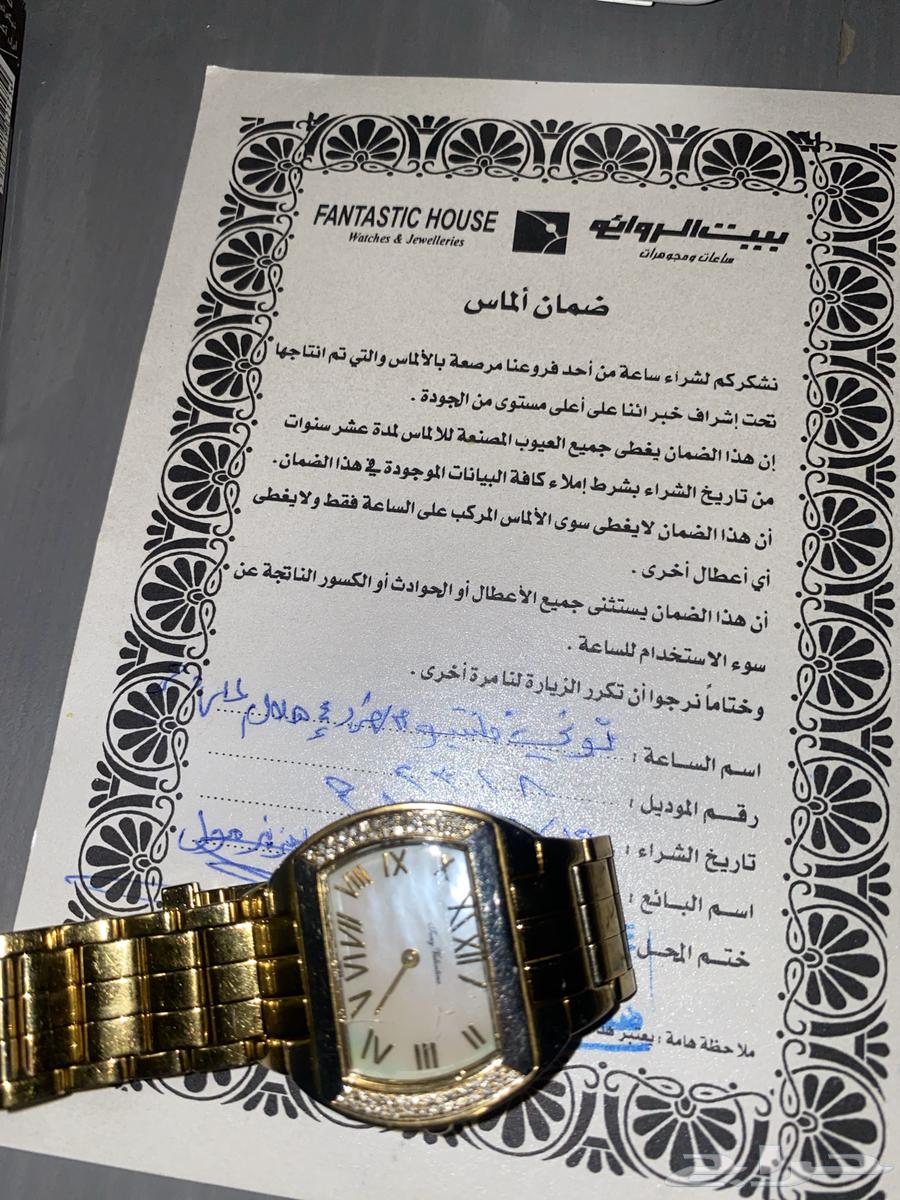 FANTASTIC HOUSE
Watches & Jewelleries
بيت الروائع
ساعات ومجوهرات
ضمان ألماس
نشكركم لشراء ساعة من أحد فروعنا مرصعة بالألماس والتي تم انتاجها
تحت إشراف خبرائنا على أعلى مستوى من الجودة .
إن هذا الضمان يغطى جميع العيوب المصنعة للالماس لمدة عشر سنوات
من تاريخ الشراء بشرط إملاء كافة البيانات الموجودة في هذا الضمان.
أن هذا الضمان لايغطى سوى الألماس المركب على الساعة فقط ولايغطى
أي أعطال أخرى .
أن هذا الضمان يستثنى جميع الأعطال أو الحوادث أو الكسور الناتجة عن
سوء الاستخدام للساعة .
وختاماً نرجوا أن تكرر الزيارة لنا مرة أخرى .
اسم الساعة :
رقم الموديل :
تاريخ الشراء :
اسم البائع :
ختم المحل
ملاحظة هامة : يعتبر
VIII IX X XI XII I
VII VI V IV III II
حراج